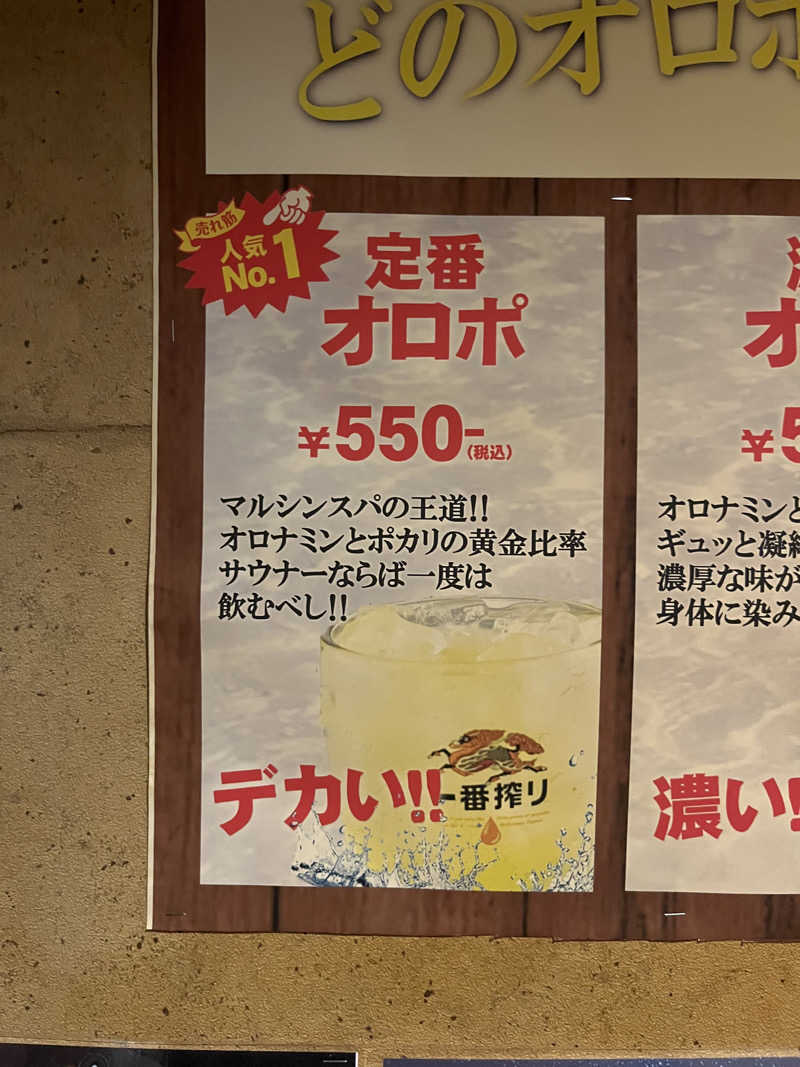 どのオロポ
売れ筋
人気
No.1
定番
オロポ
¥550-
(税込)
マルシンスパの王道!!
オロナミンとポカリの黄金比率
サウナーならば一度は
飲むべし!!
デカい!!
一番搾り
オ
¥5
オロナミンと
ギュッと凝縮
濃厚な味が
身体に染み
濃い!